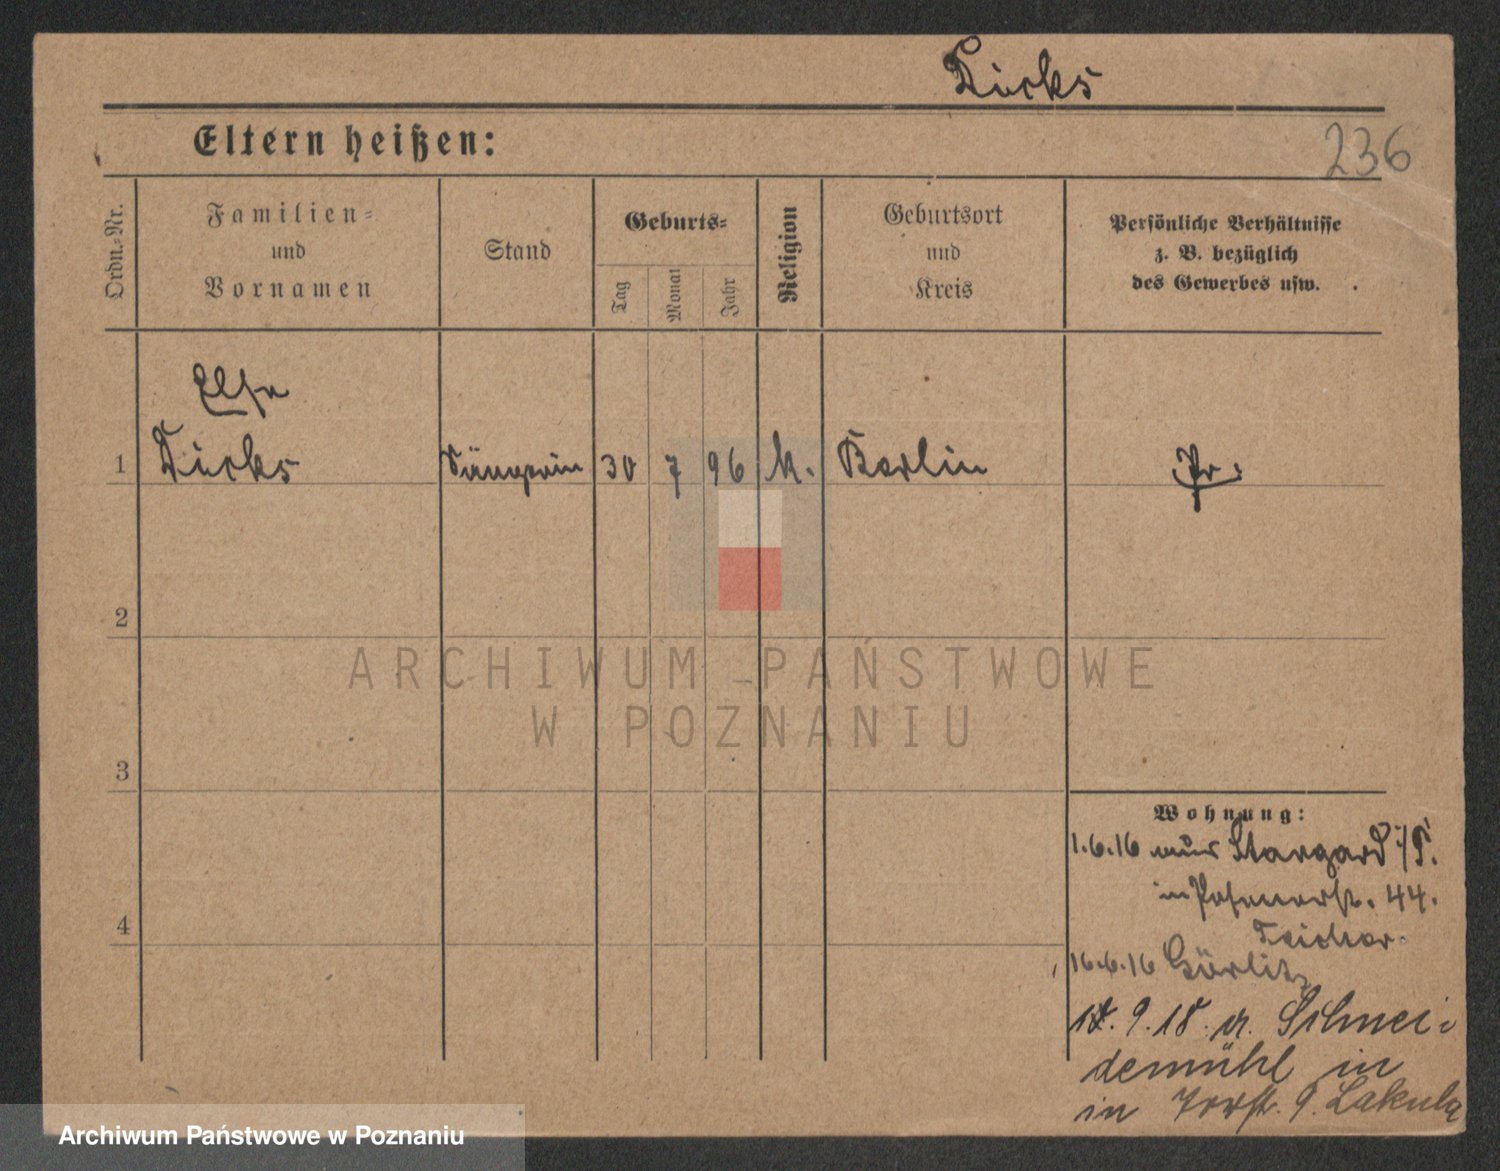 Dirks
Eltern heißen:
236
Ordn.-Nr.
Familien-
und
Vornamen
Stand
Geburts-
Tag
Monat
Jahr
Religion
Geburtsort
und
Kreis
Persönliche Verhältnisse
z. B. bezüglich
des Gewerbes usw.
Else
1 Dirks Sängerin 30 7 96 Berlin Pr.
2
3
4
Wohnung:
1.6.16 aus Stargard i/P.
in Posenerstr. 44.
Teicher.
16.6.16 Görlitz
9.18. Schnei-
demühl in
in 9. Lakula
ARCHIWUM PAŃSTWOWE
W POZNANIU
Archiwum Państwowe w Poznaniu